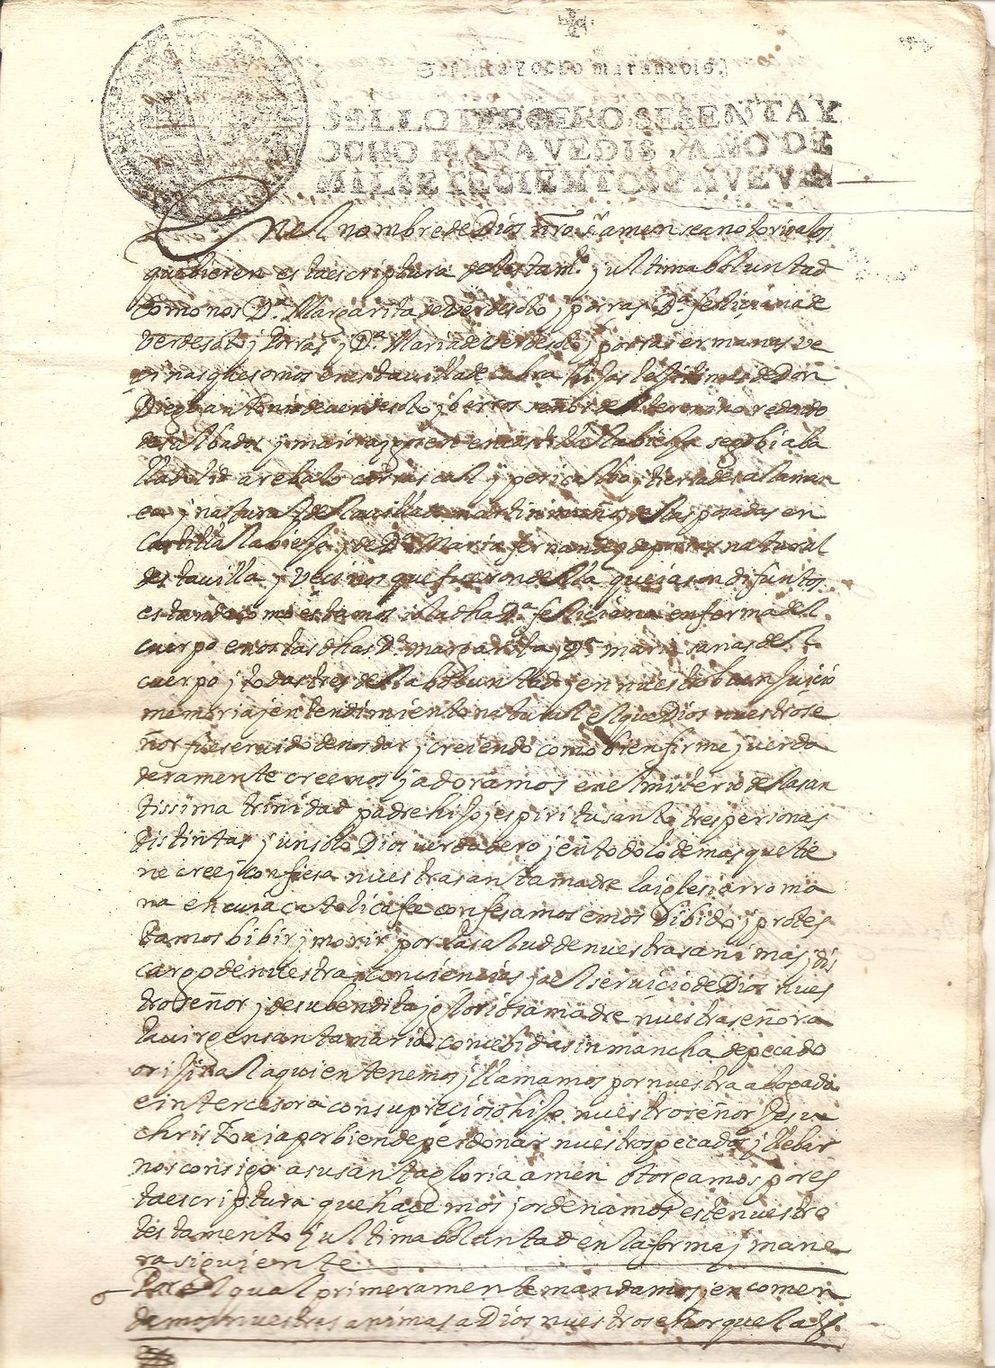 Sesenta y ocho marauedis.
SELLO TERCERO SESENTA Y
OCHO MARAVEDIS, AÑO DE
MIL SETECIENTOS Y NVEVE
En el nombre de Dios nro sr amen sea notorio a los
que bieren esta escriptura de testamto y ultima boluntad
Como nos Da Margarita de Verdesoto y porras Da feliciana de
Verdesoto y Porras y Da Maria de Verdesoto y porras ermanas ve
cinas que somos en esta villa de cabra hijas lejitimas de Don
Diego antonio de verdesoto y señor del termino redondo
de y en castilla la biexa segobia ba
lladolid arebalo y tierra de salaman
ca y natural de la villa de martin muñoz de las posadas en
Castilla la biexa y de Da Maria fernandez de porras natural
desta villa y vecinos que fueron della que ia son difuntos
estando como estamos io la dha Da feliciana enferma del
cuerpo e nos las dhas Da margarita y Da maria sanas del
cuerpo y todas tres de la boluntad y en nuestro buen juicio
memoria y entendimiento natural el que Dios nuestro se
ñor fue seruido de nos dar y creiendo como bien firme y uerda
deramente creemos y adoramos en el misterio de la san
tissima trinidad padre hijo y espiritu santo tres personas
distintas y un solo Dios uerdadero y en todo lo demas que tie
ne cree y confiesa nuestra santa madre la iglesia rroma
na en cuia catolica fe confesamos emos bibido y protes
tamos bibir y morir por la salud de nuestras animas dis
cargo de nuestras conciencias y al seruicio de Dios nues
tro señor y de su bendita y gloriosa madre nuestra señora
la uirgen santa maria concebida sin mancha de pecado
orijinal a quien tenemos y llamamos por nuestra abogada
e intercesora con su precioso hijo nuestro señor Jesu
christo aia por bien de perdonar nuestros pecados y llebar
nos consigo a su santa gloria amen otorgamos por es
ta escriptura que hacemos y ordenamos este nuestro
testamento y ultima boluntad en la forma y mane
ra siguiente
Por el qual primeramente mandamos y encomen
damos nuestras animas a Dios nuestro señor que las